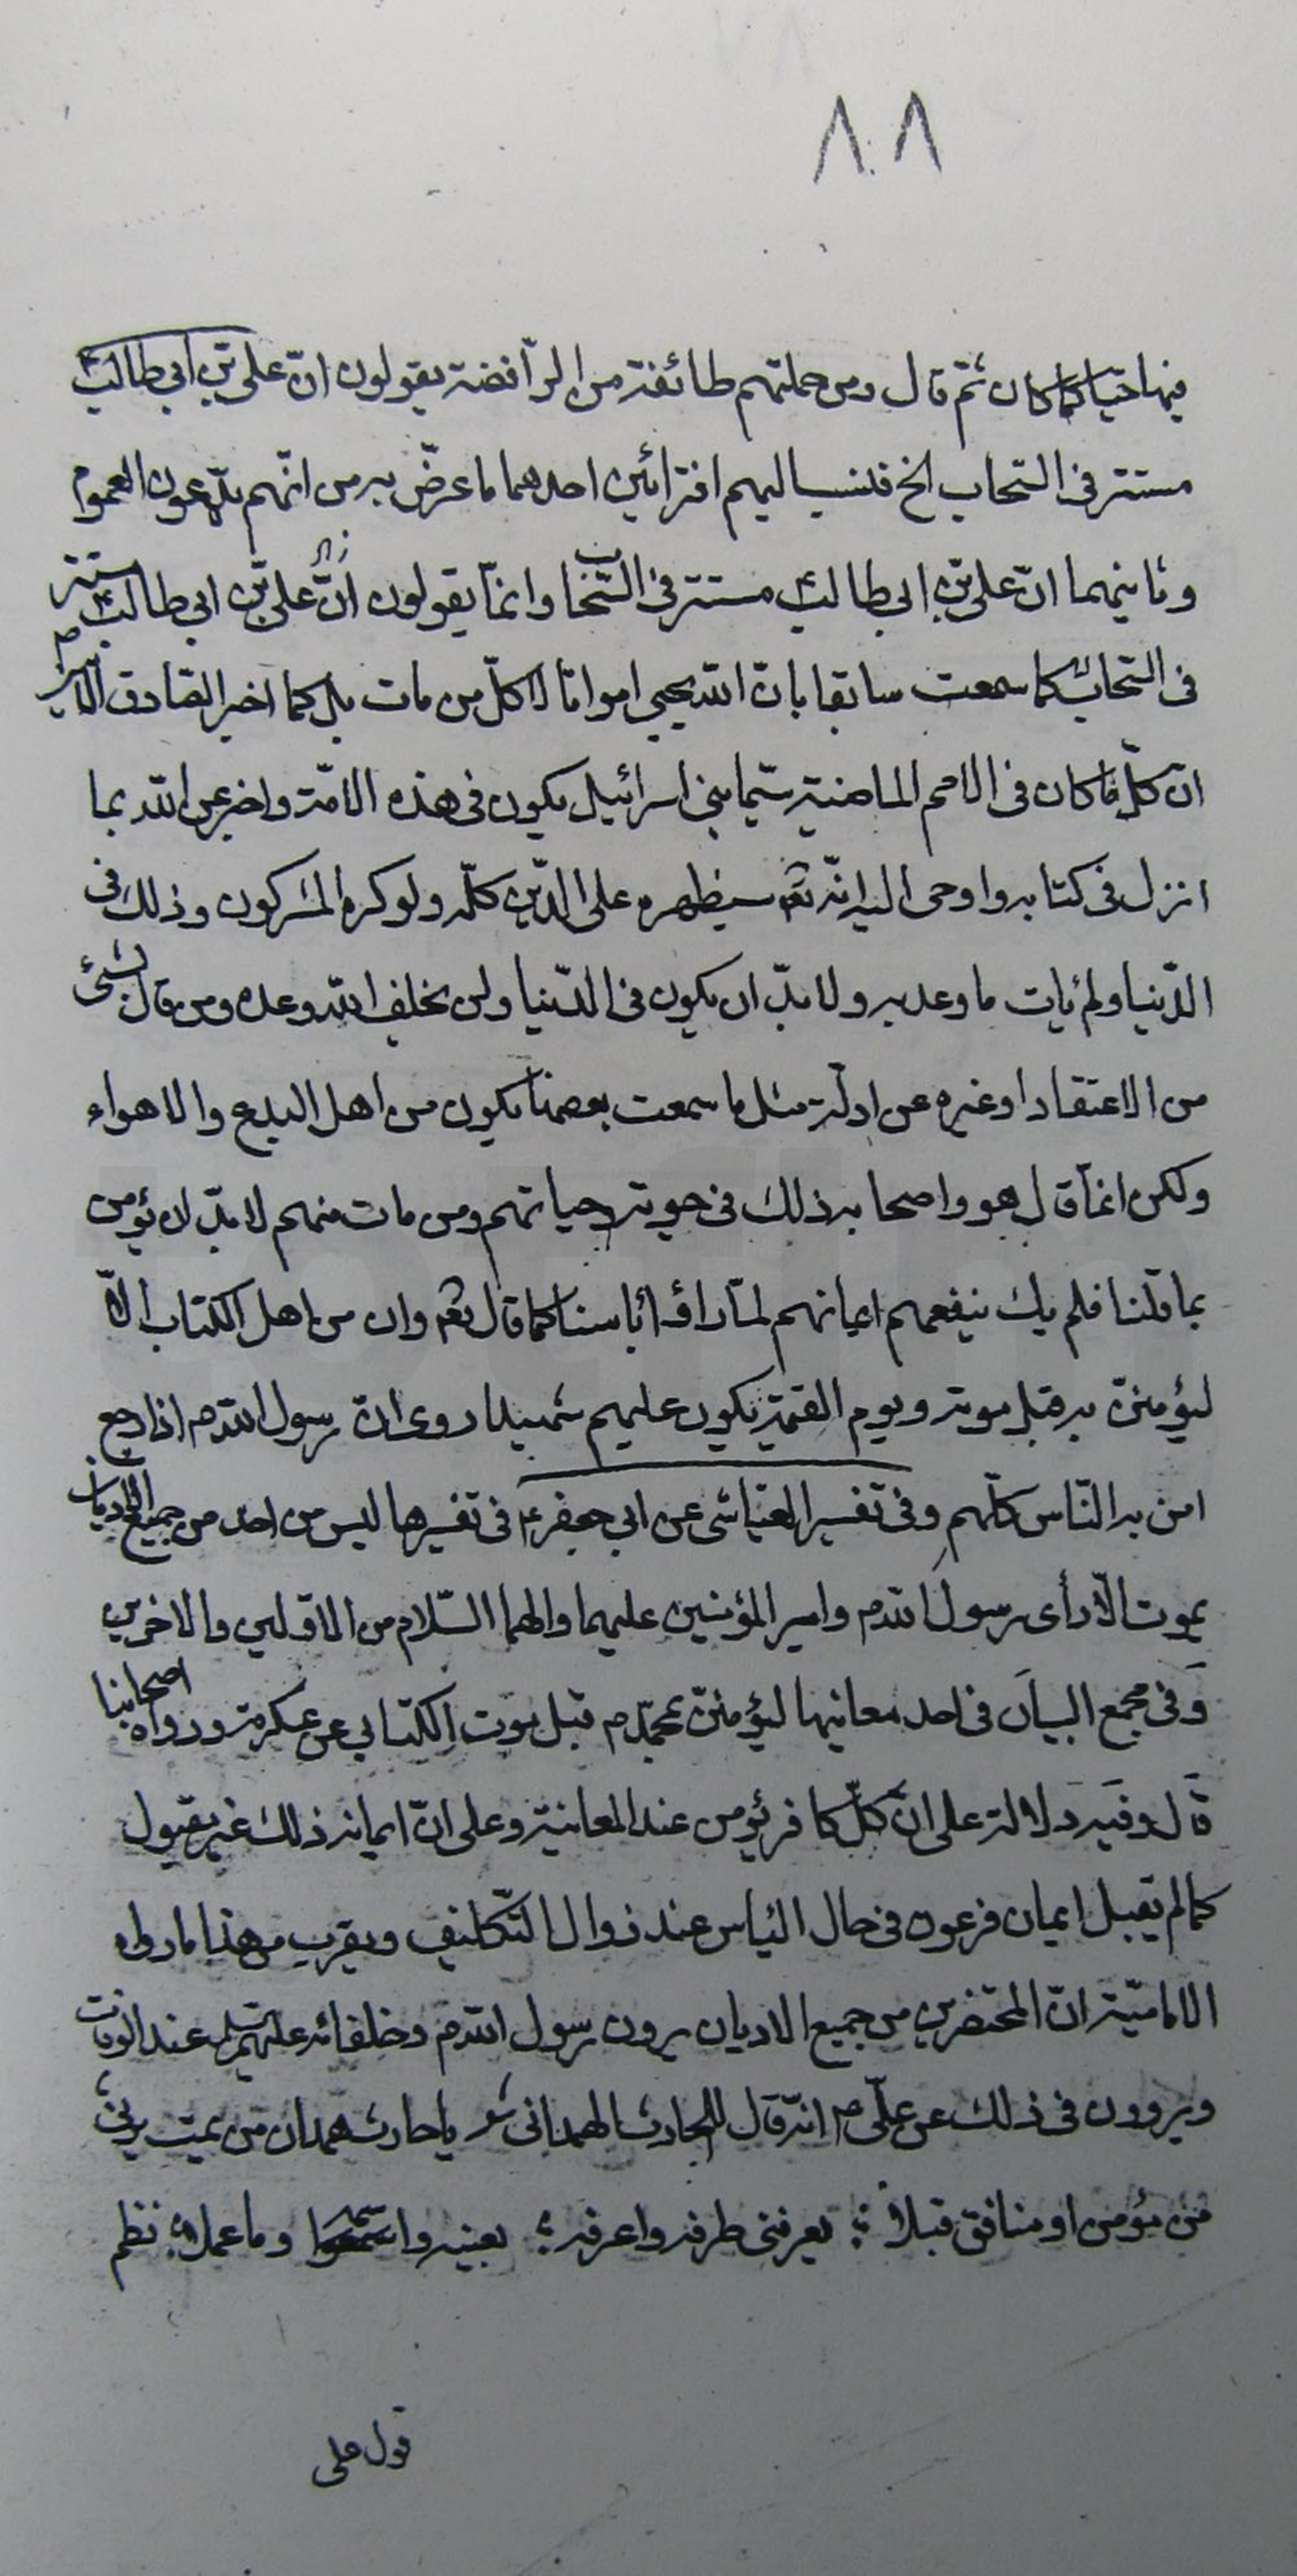 ٨٠٨
فيها حيّا كما كان ثم قال ومن جملتهم طائفة من الرّافضة يقولون انّ علي بن ابي طالب
مستتر في السّحاب الخ فنسب اليهم افترائين احدهما ما عرّض به من انّهم يدّعون العموم
وثانيهما انّ علي بن ابي طالبؑ مستتر في السّحاب وانّما يقولون انّ علي بن ابي طالبؑ
في السّحاب كما سمعت سابقا بانّ الله يحيي امواتا لا كلّ من مات بل كما اخبر الصّادق
انّ كلّ ما كان في الامم الماضية سيّما بني اسرائيل يكون في هذه الامّة واخبر عن الله بما
انزل في كتابه واوحى اليه انّه تعٰ سيظهره على الدّين كلّه ولو كره المشركون وذلك في
الدّنيا ولم يأت ما وعد به ولا بدّ ان يكون في الدّنيا ولن يخلف الله وعده ومن قال بشيء
من الاعتقاد او غيره عن ادلّة مثل ما سمعت بعضها يكون من اهل البدع والاهواء
ولكن انّما قال هو واصحابه ذلك في حياتهم ومن مات منهم لا بدّ ان يؤمن
بما قلنا فلم يك ينفعهم ايمانهم لمّا رأوا بأسنا كما قال تعٰ وان من اهل الكتاب الّا
ليؤمننّ به قبل موته ويوم القيمة يكون عليهم شهيدا روى انّ رسول الله ص اذا رجع
امن به النّاس كلّهم وفي تفسير العيّاشي عن ابي جعفرؑ في تفسيرها ليس من احد من جميع الاديان
يموت الّا رأى رسول الله ص وامير المؤمنين عليهما والهما السّلام من الاوّلين والاخرين
وفي مجمع البيان في احد معانيها ليؤمننّ بمحمّد ص قبل موت الكتابي عن عكرمة ورواه اصحابنا
قال وفيه دلالة على انّ كلّ كافر يؤمن عند المعاينة وعلى انّ ايمانه ذلك غير مقبول
كما لم يقبل ايمان فرعون في حال اليأس عند زوال التّكليف ويقرب من هذا ما رواه
الاماميّة انّ المحتضرين من جميع الاديان يرون رسول الله ص وخلفائه عليهم السلم عند الوفات
ويروون في ذلك عن عليّ ع انّه قال للحارث الهمداني شعر يا حارث همدان من يمت يرني
من مؤمن او منافق قبلا ؛ يعرفني طرفه واعرفه ؛ بعينه واسمه وما عملا ؛ نظم
قول علي